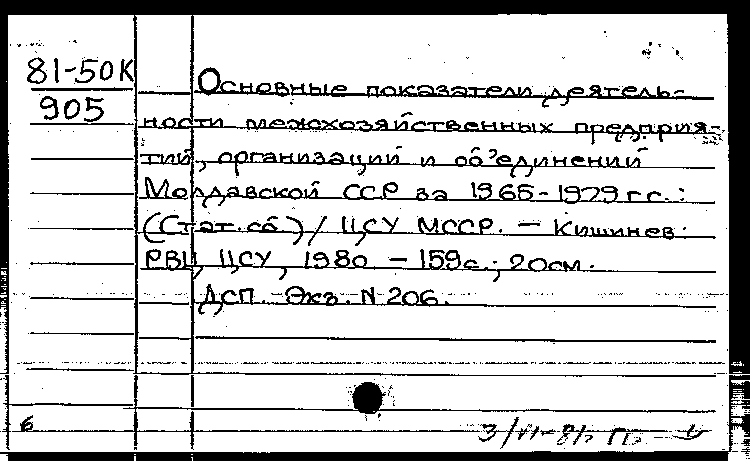 81-50К
905
Основные показатели деятель-
ности межхозяйственных предприя-
тий, организаций и об'единений
Молдавской ССР за 1965-1979 г.г.:
(Стат. сб.) / ЦСУ МССР. - Кишинев:
РВЦ ЦСУ, 1980 - 159с.; 20см.
ДСП. Экз. N 206.
6
3/VI-81г.